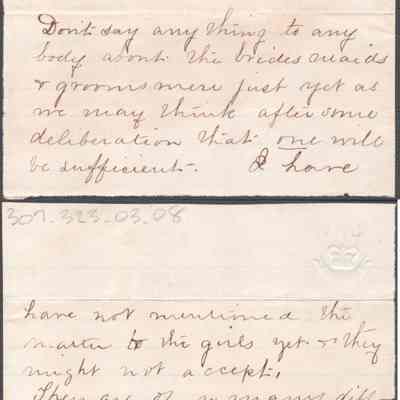 Don't say any thing to any
body about the brides maids
& grooms mere just yet as
we may think after some
deliberation that one will
be sufficient. I have
307.323.03.08
have not mentioned the
matter to the girls yet & they
might not accept.
There are of so many diff-